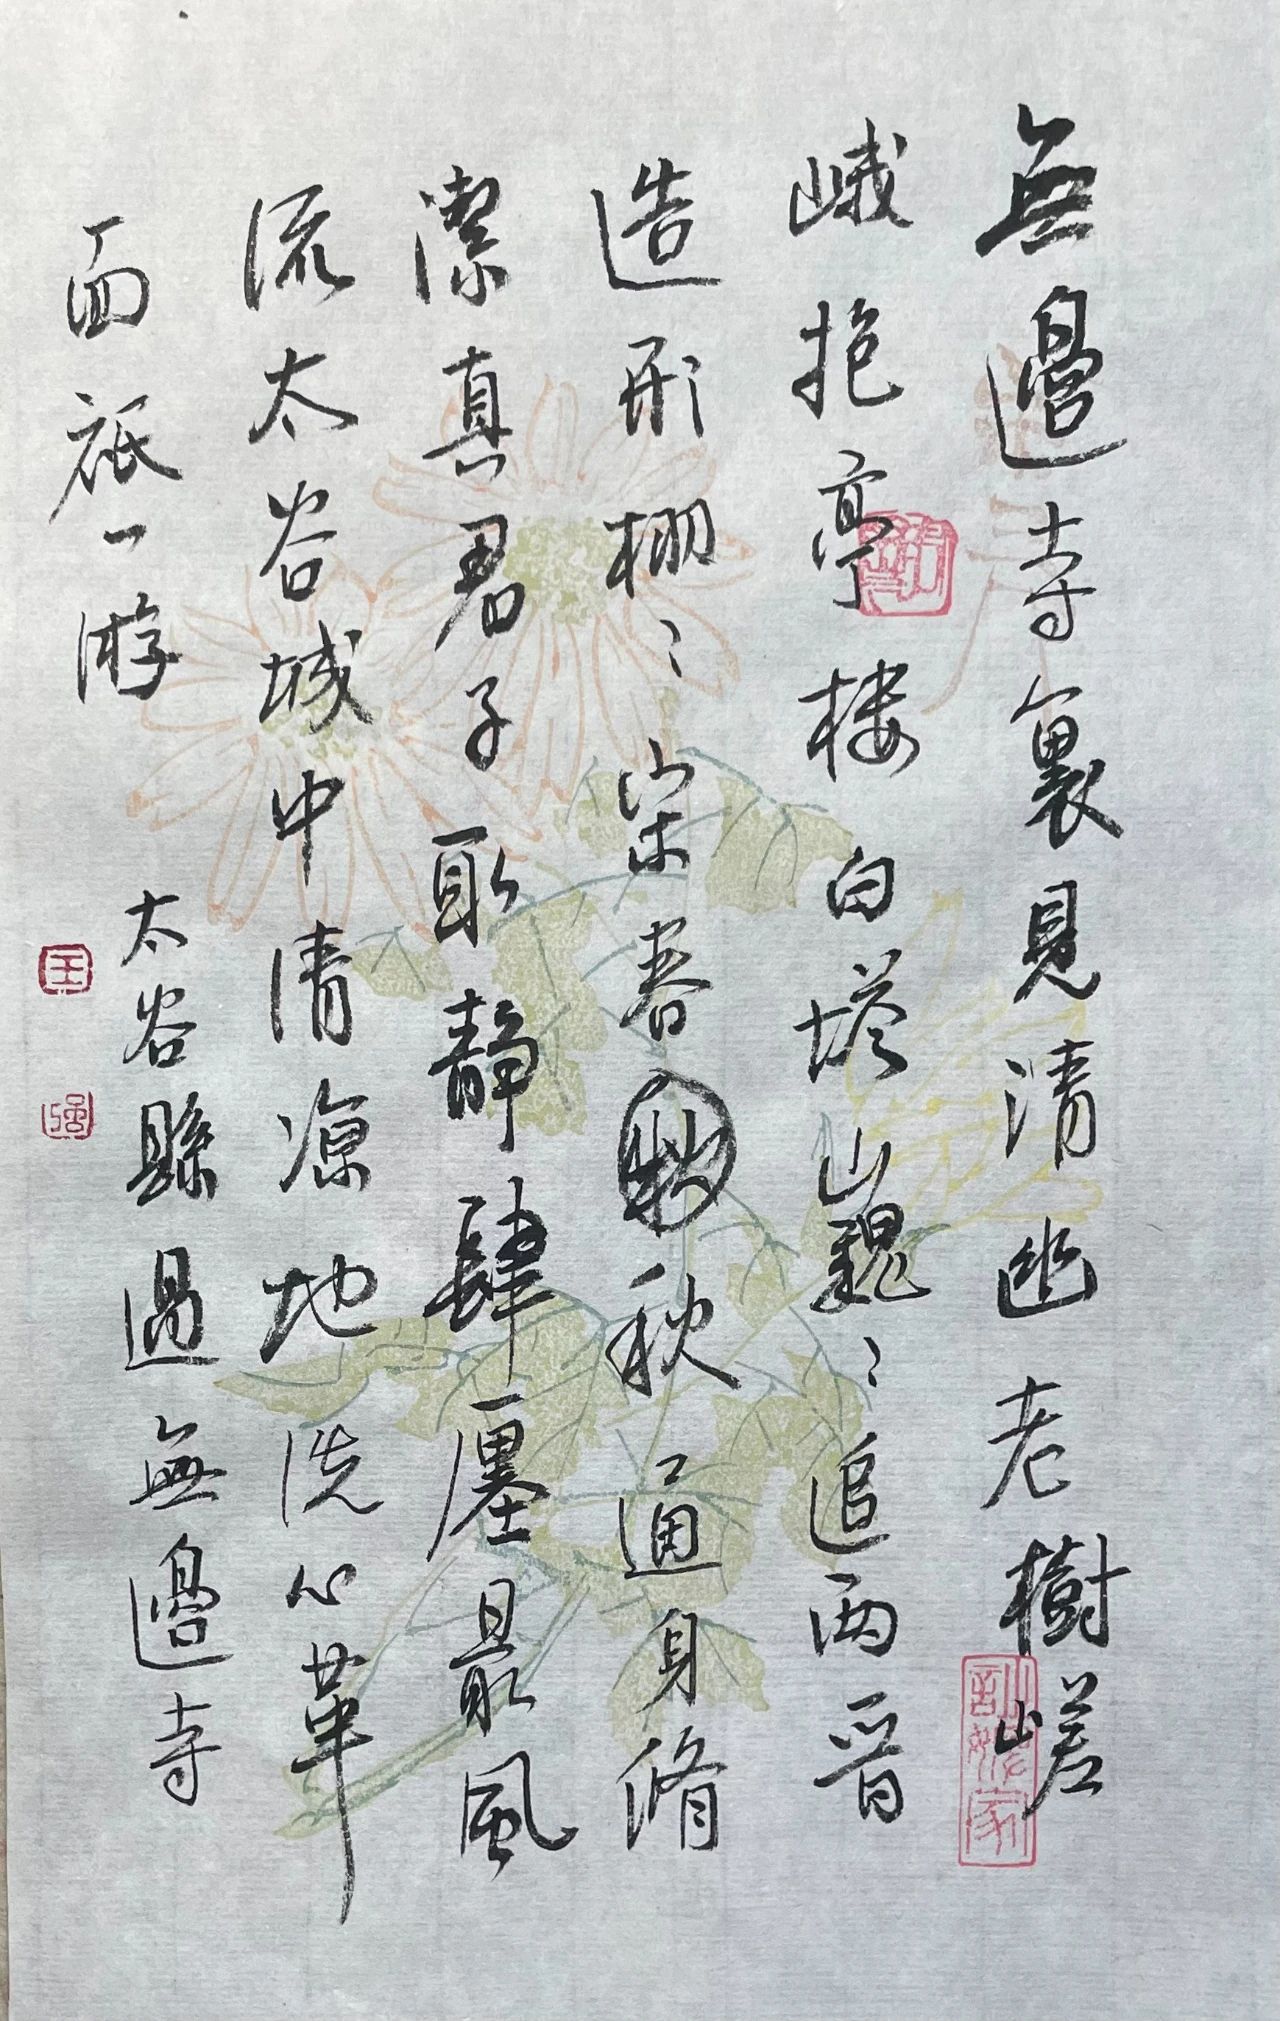 無邊寺裏見清幽老樹嵯
峨抱亭樓白塔巍〻追兩晉
造形栩〻宋春秋通身脩
潔真君子取靜肆廛最風
流太谷城中清涼地洗心革
面祇一游
太谷縣過無邊寺
王
強